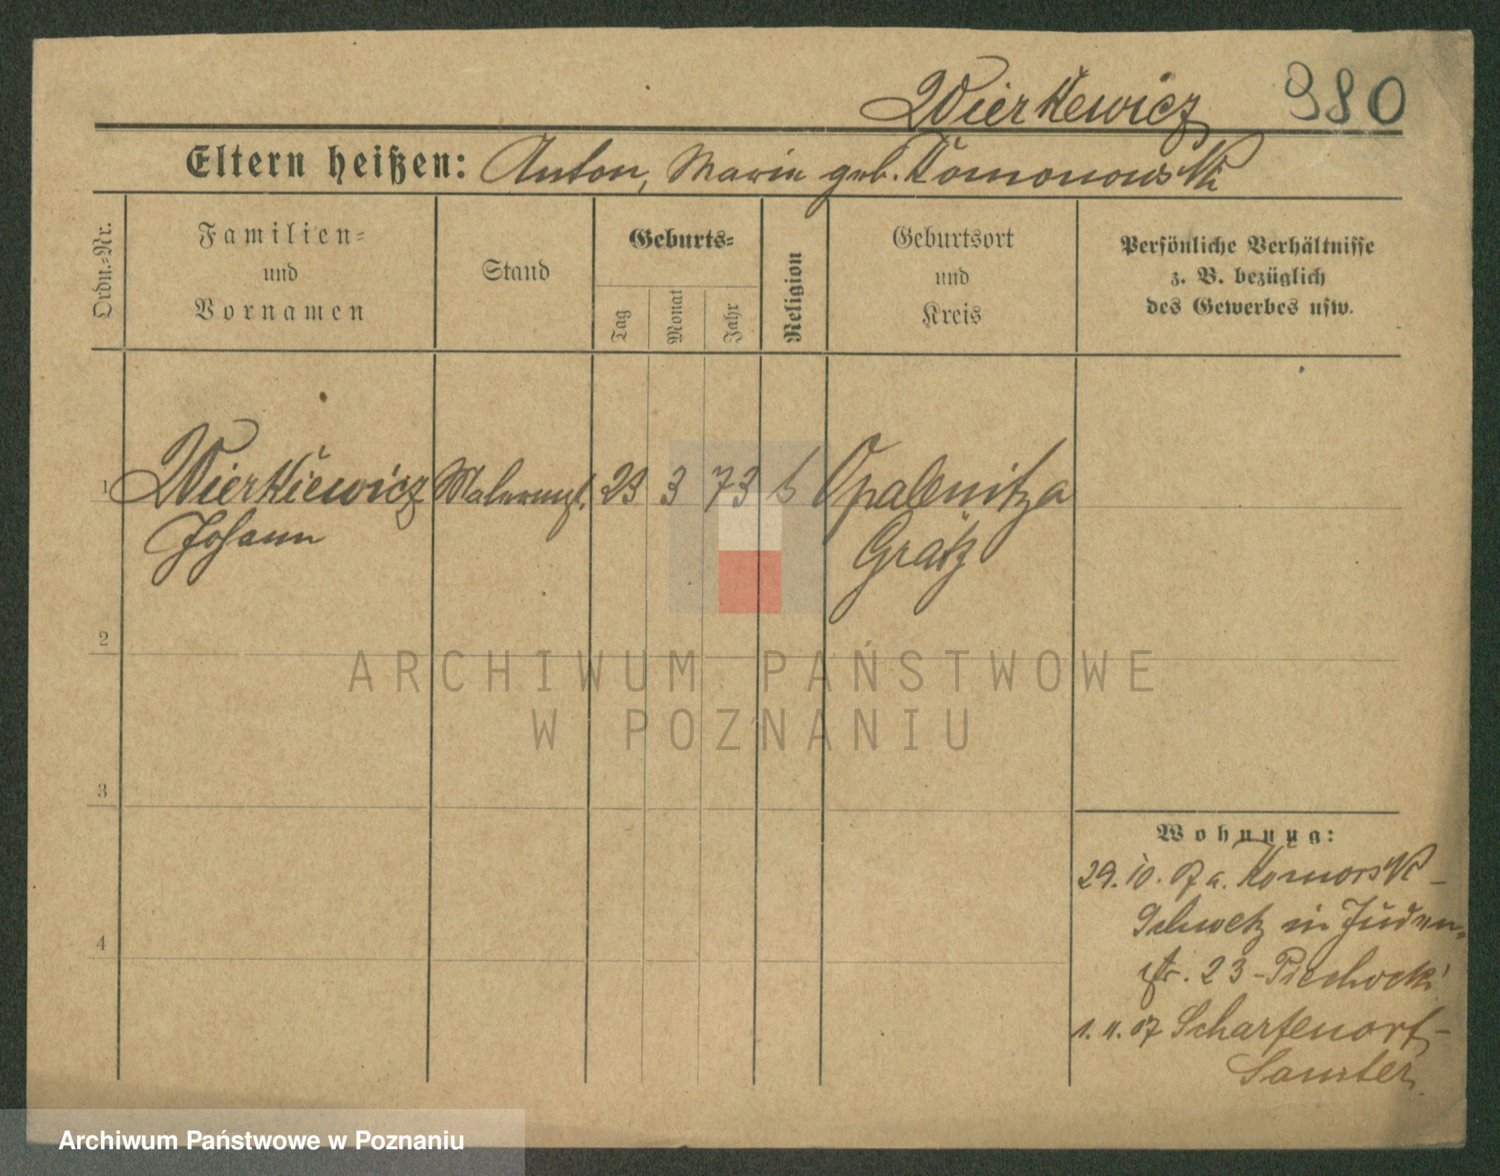 Wierkewicz 980
Eltern heißen: Anton, Maria geb. Komonowski
Ordn.-Nr.
Familien-
und
Vornamen
Stand
Geburts-
Tag
Monat
Jahr
Religion
Geburtsort
und
Kreis
Persönliche Verhältnisse
z. B. bezüglich
des Gewerbes usw.
1 Wierkiewicz Malermst. 23 3 73 k Opalenitza
Johann Grätz
2
3
4
Wohnung:
29. 10. 07 a. Komorski-
Schwetz in Juden-
str. 23 - Piechocki
1. 11. 07 Scharfenort-
Samter
ARCHIWUM PAŃSTWOWE
W POZNANIU
Archiwum Państwowe w Poznaniu